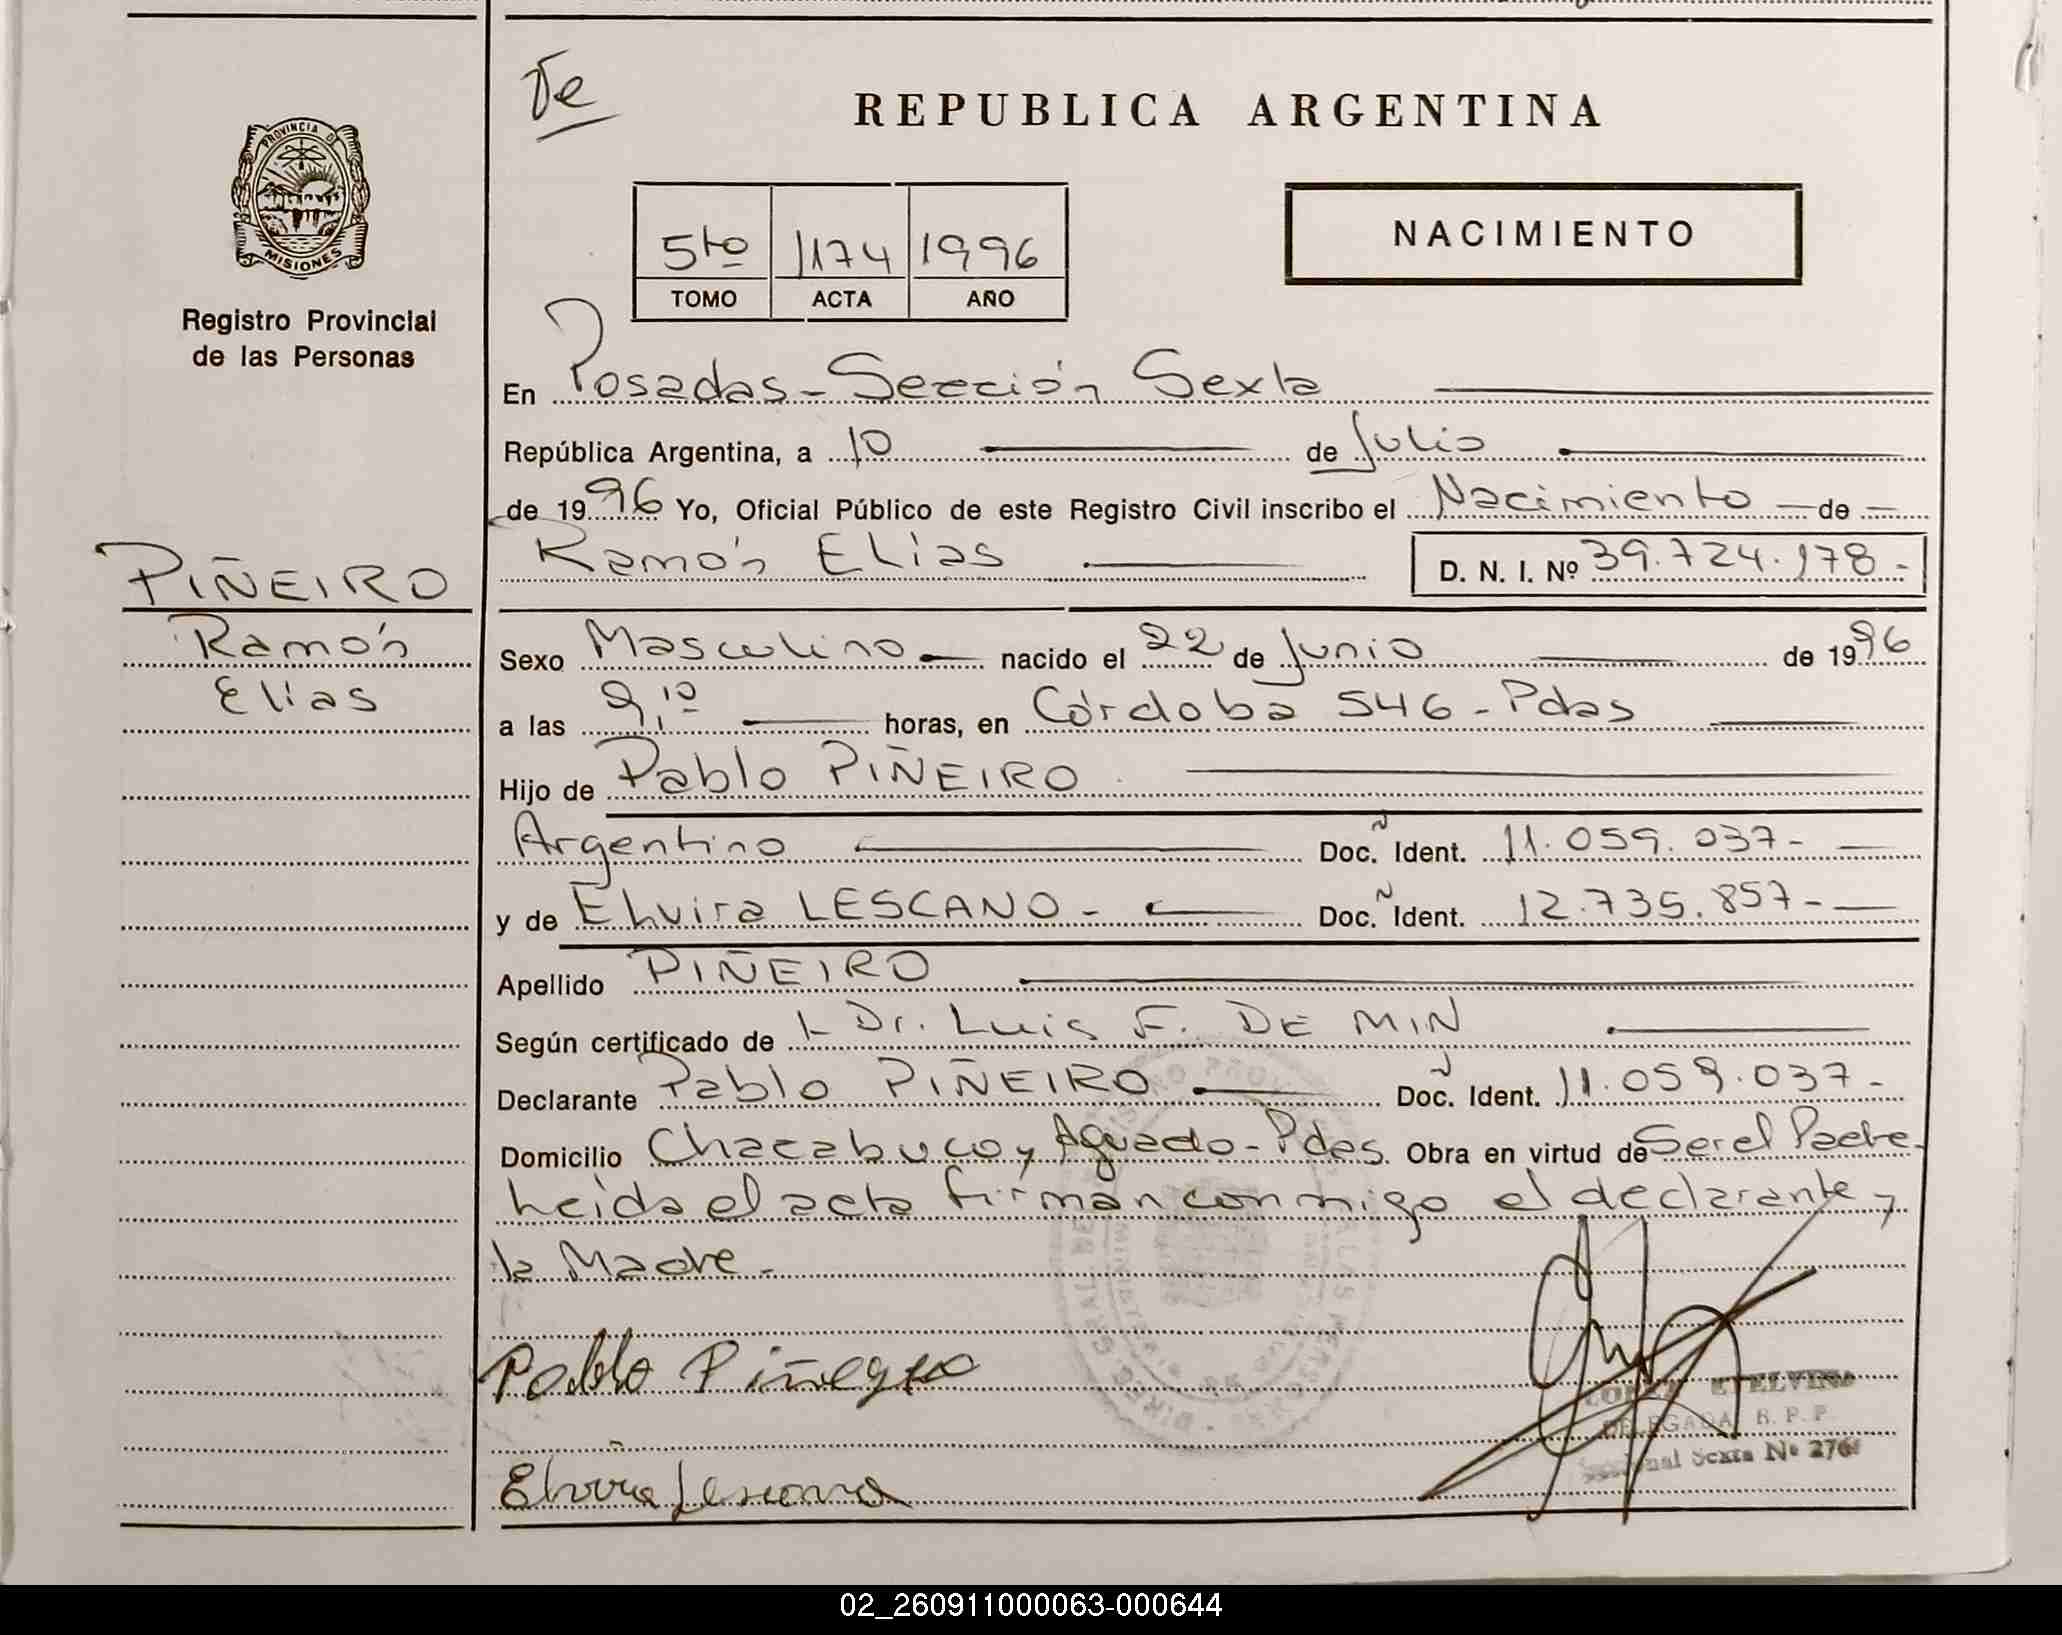 Te
REPUBLICA ARGENTINA
PROVINCIA DE
MISIONES
Registro Provincial
de las Personas
5to 1174 1996
TOMO ACTA AÑO
NACIMIENTO
En Posadas - Sección Sexta
República Argentina, a 10 de Julio
de 1996 Yo, Oficial Público de este Registro Civil inscribo el Nacimiento - de -
Ramón Elías D. N. I. Nº 39.724.178.-
PIÑEIRO
Ramón
Elías
Sexo Masculino nacido el 22 de Junio de 1996
a las 9,10 horas, en Córdoba 546 - Pdas
Hijo de Pablo PIÑEIRO
Argentino Doc. Ident. 11.059.037-
y de Elvira LESCANO - Doc. Ident. 12.735.857-
Apellido PIÑEIRO
Según certificado de Dr. Luis F. DE MIN
Declarante Pablo PIÑEIRO Doc. Ident. 11.059.037-
Domicilio Chacabuco y Aguado - Pdas. Obra en virtud de Ser el Padre-
Leída el acta firman conmigo el declarante y
la Madre.-
Pablo Piñeyro
Elvira Lescano
LOPEZ ETELVINA
DELEGADA R. P. P.
Seccional Sexta Nº 276
02_260911000063-000644